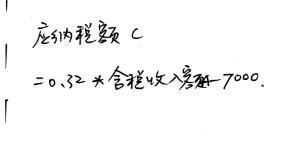 应纳税额 C
=0.32*含税收入额A-7000.